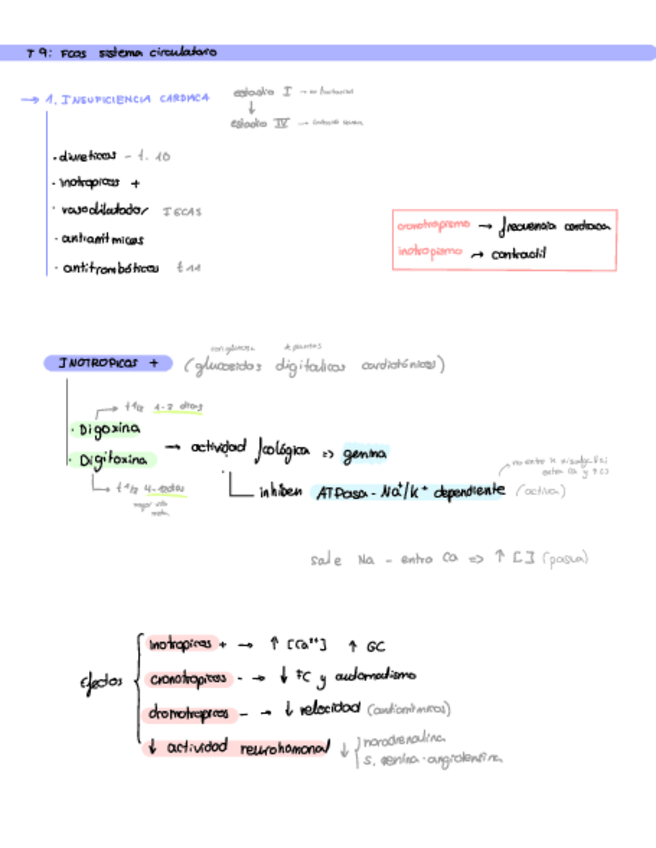 T 9: FCOS sistema circulatorio
→ 1. INSUFICIENCIA CARDIACA
estadio I →
↓
estadio IV →
· diureticos - t. 10
· inotropicos +
· vasodilatador IECAS
· antiarritmicos
· antitrombóticos t11
cronotropismo → frecuencia cardiaca
inotropismo → contractil
INOTROPICOS + (glucosidos digitalicos cardiotónicos)
→ t1/2 1-2 dias
· Digoxina
· Digitoxina
→ actividad fcológica => genina
→ t1/2 4-7 dias
inhiben ATPasa - Na+/K+ dependiente (activa)
sale Na - entra Ca => ↑ [ ] (pasiva)
Efectos
inotropicos + → ↑ [Ca++] ↑ GC
cronotropicos - → ↓ FC y automatismo
dromotropicos - → ↓ velocidad (antiarritmicos)
↓ actividad neurohormonal ↓
noradrenalina
s. renina-angiotensina